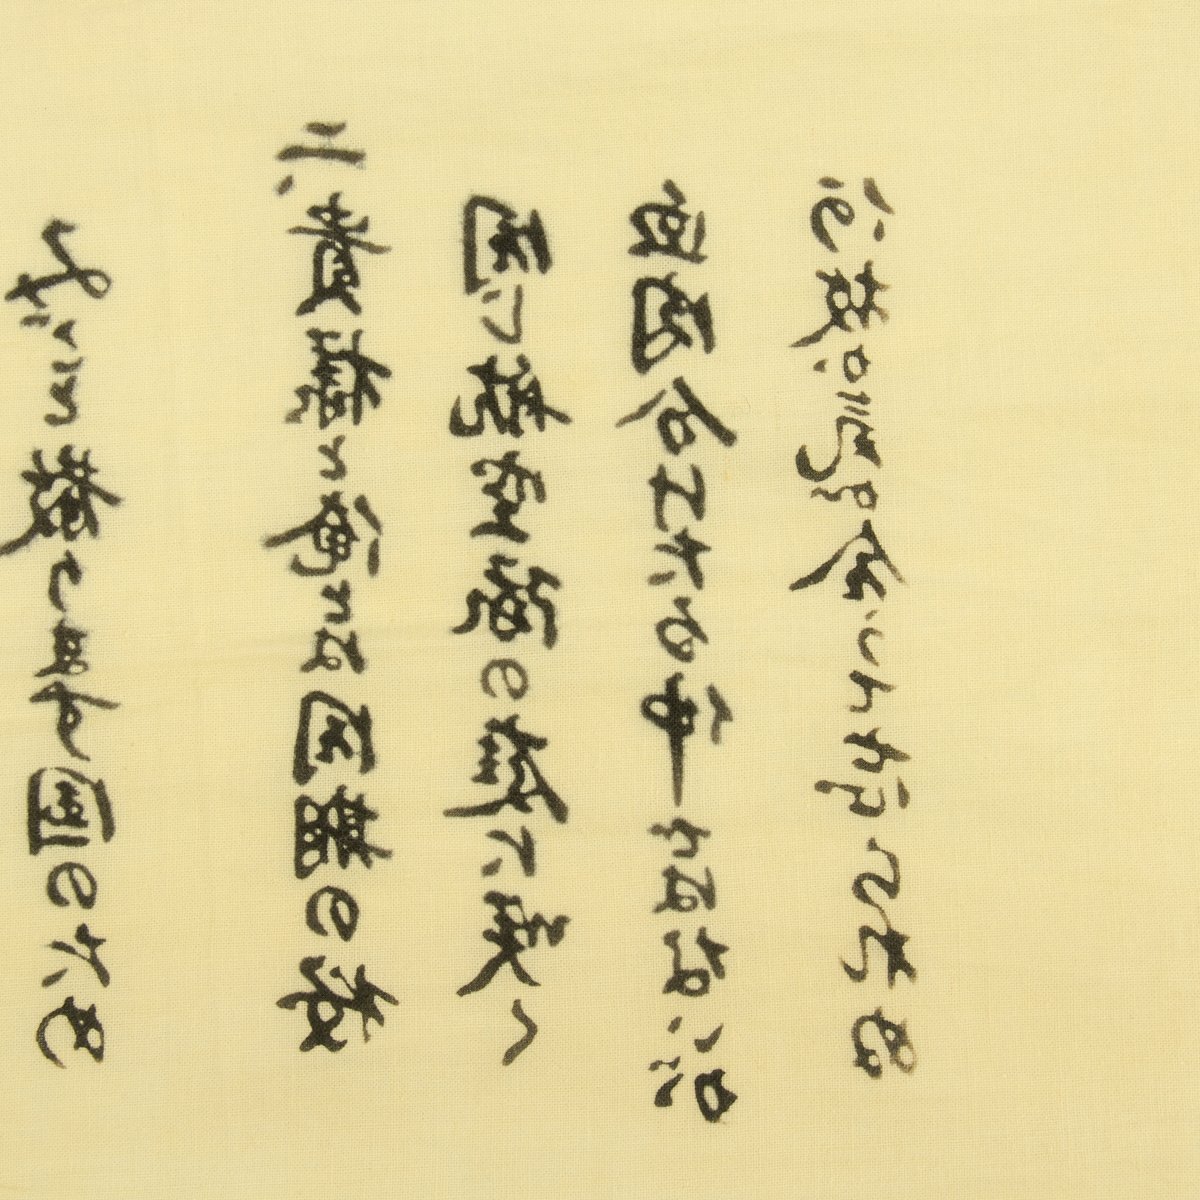 みごと散りませう国のため
二、貴様と俺とは同期の桜
同じ航空隊の庭に咲く
血肉分けたる仲ではないが
なぜか気が合うて別れられぬ